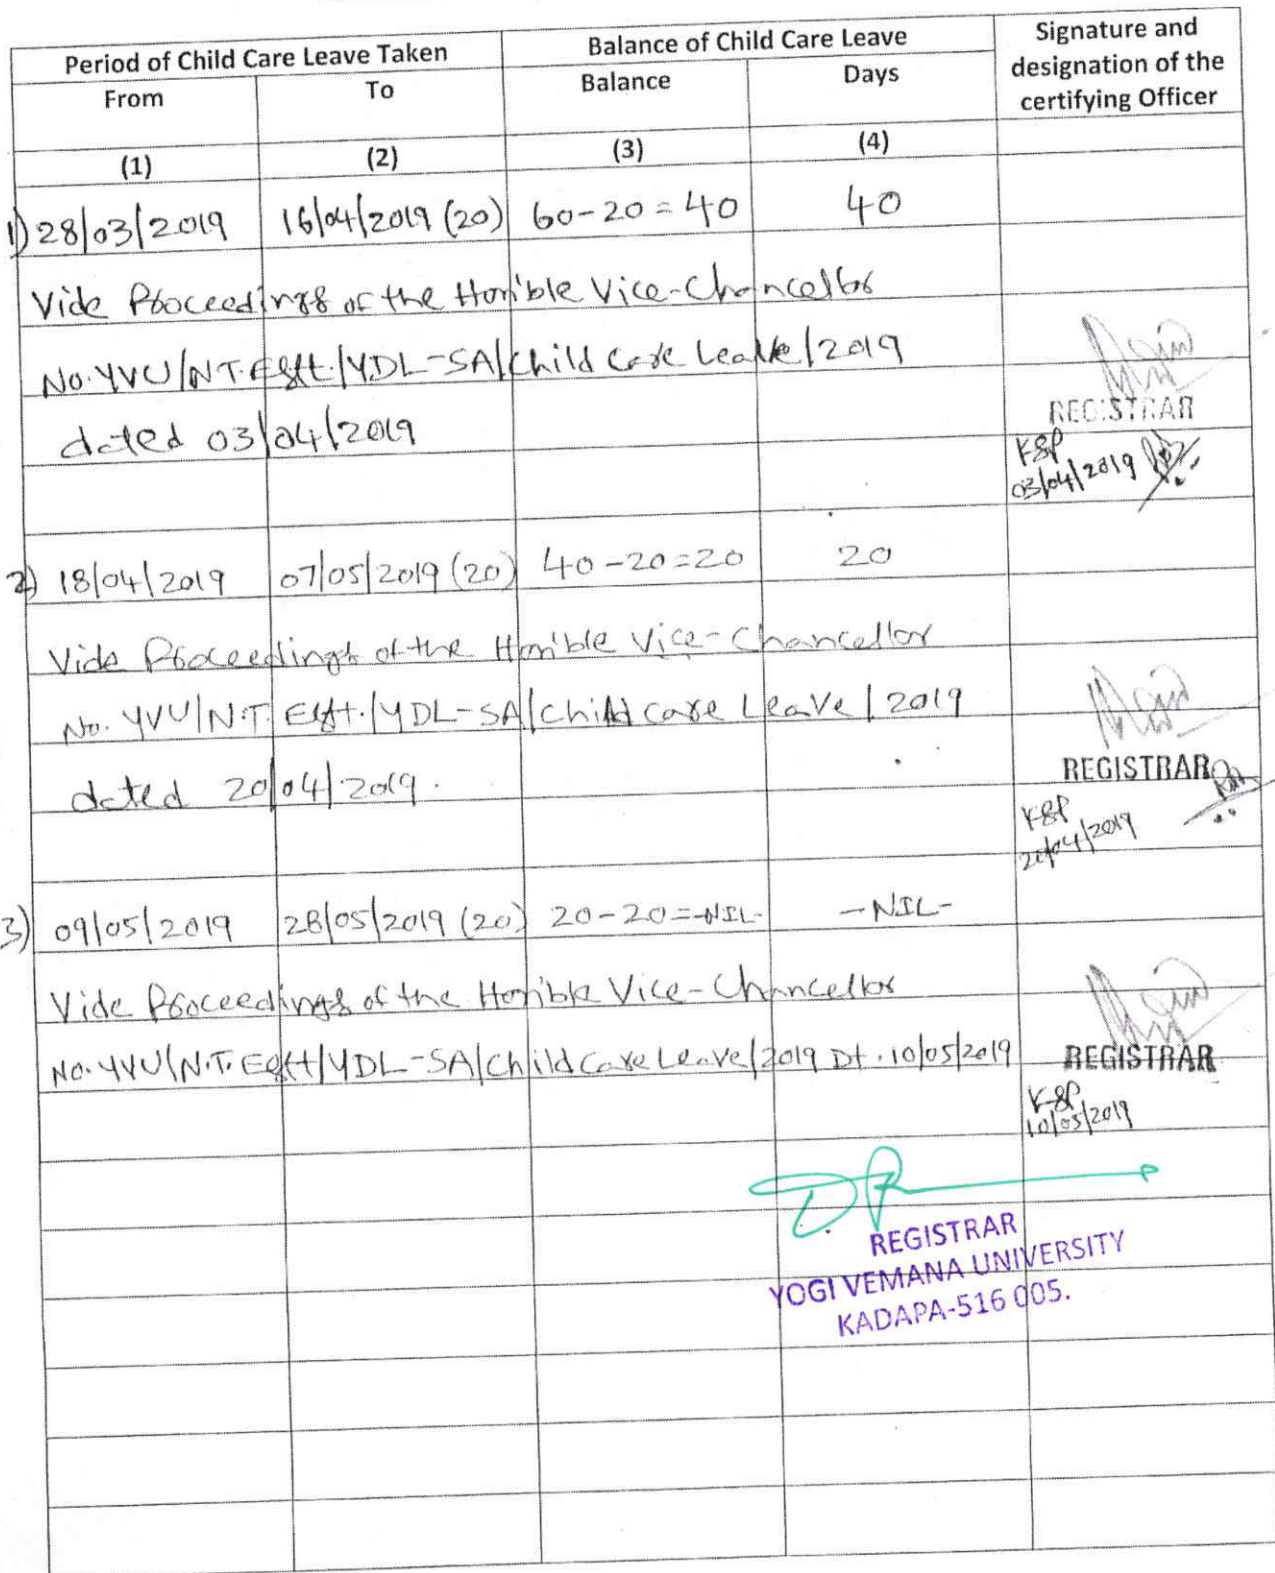 Period of Child Care Leave Taken Balance of Child Care Leave Signature and designation of the certifying Officer
From To Balance Days
(1) (2) (3) (4)
1) 28/03/2019 16/04/2019 (20) 60-20=40 40
Vide Proceedings of the Hon'ble Vice-Chancellor
No. YVU/N.T.Estt./YDL-SA/Child Care Leave/2019
dated 03/04/2019
REGISTRAR
03/04/2019
2) 18/04/2019 07/05/2019 (20) 40-20=20 20
Vide Proceedings of the Hon'ble Vice-Chancellor
No. YVU/N.T. Estt./YDL-SA/Child care Leave/2019
dated 20/04/2019.
REGISTRAR
20/04/2019
3) 09/05/2019 28/05/2019 (20) 20-20=-NIL- -NIL-
Vide Proceedings of the Hon'ble Vice-Chancellor
No. YVU/N.T. Estt/YDL-SA/Child Care Leave/2019 Dt. 10/05/2019
REGISTRAR
10/05/2019
REGISTRAR
YOGI VEMANA UNIVERSITY
KADAPA-516 005.